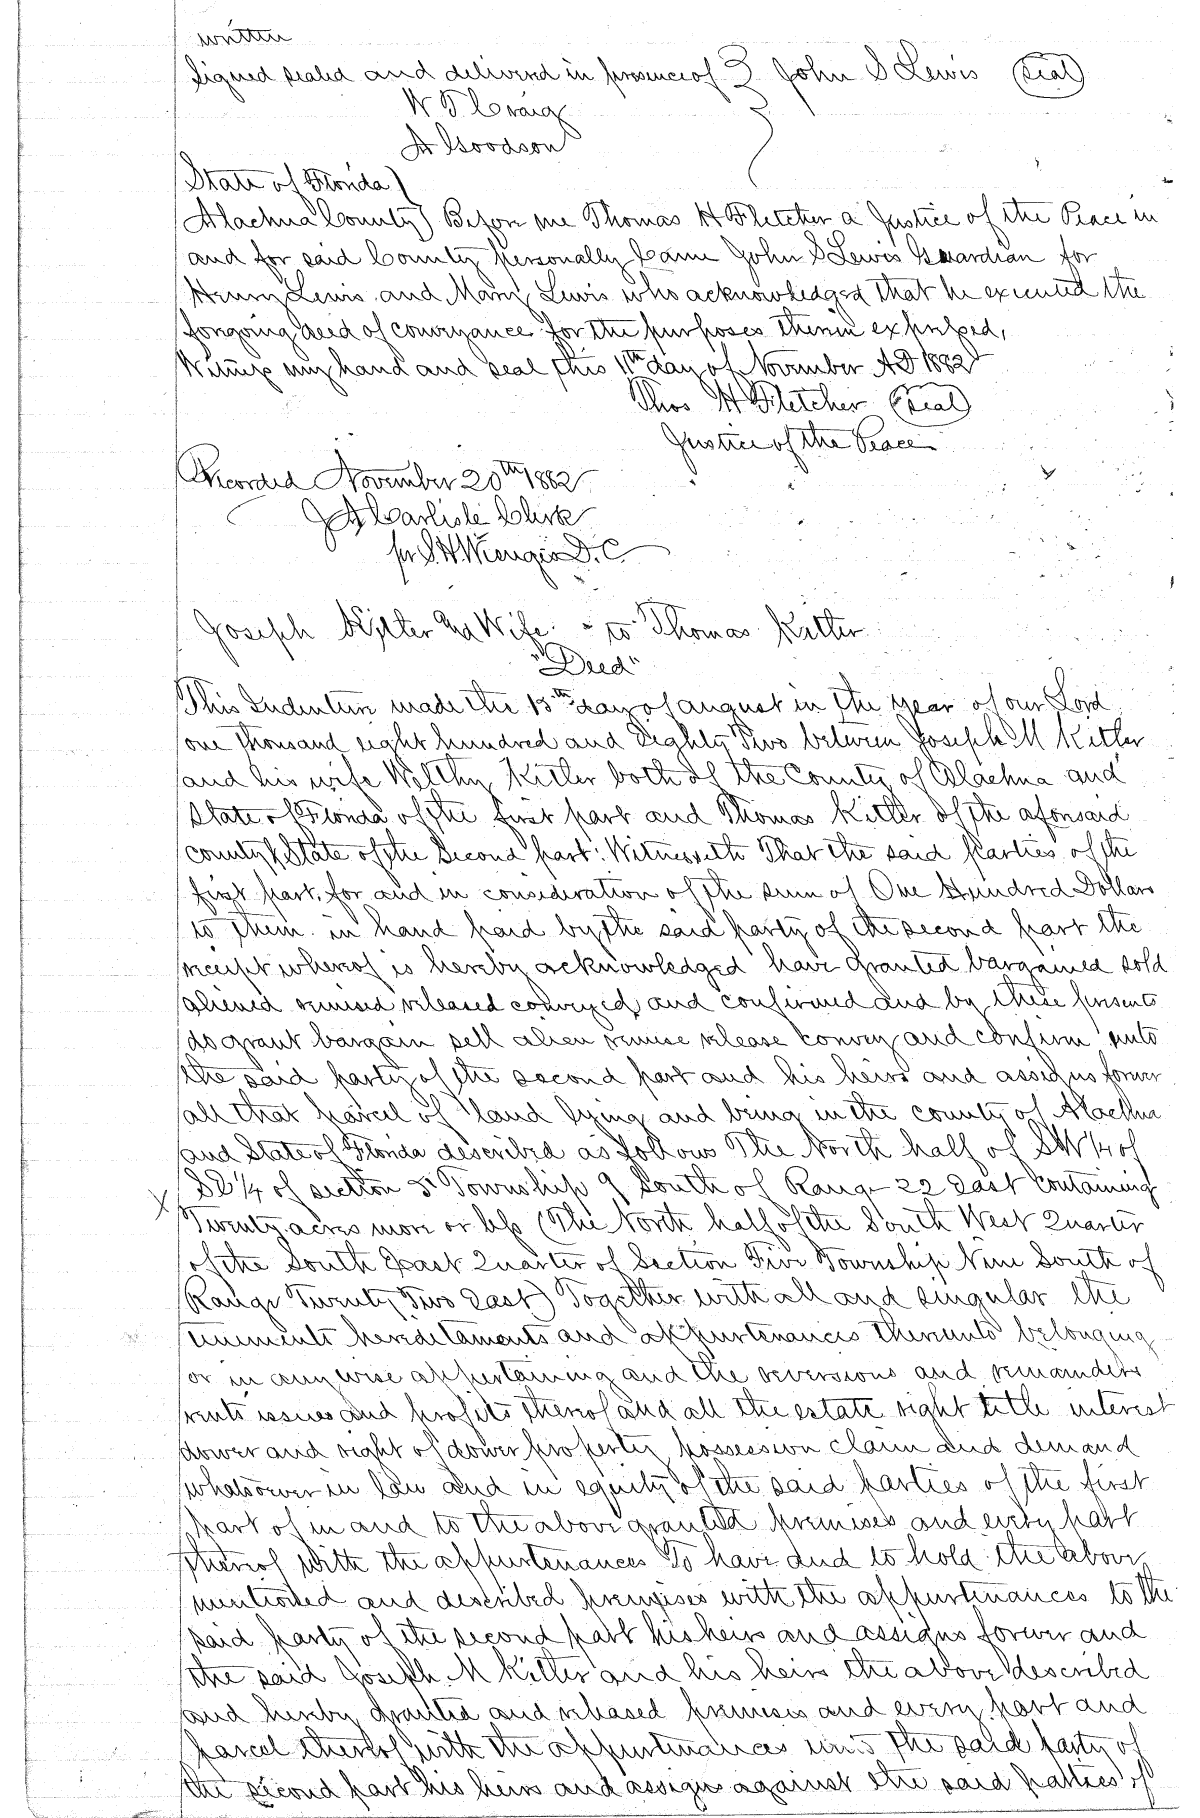 written
Signed sealed and delivered in presence of } John S Lewis (seal)
W T Craig
A Goodson
State of Florida )
Alachua County ) Before me Thomas H Fletcher a Justice of the Peace in
and for said County personally Came John S Lewis Guardian for
Henry Lewis and Mary Lewis who acknowledged that he executed the
forgoing deed of conveyance for the purposes therein expressed,
Witness my hand and seal this 11th day of November AD 1882
Thos H Fletcher (seal)
Justice of the Peace
Recorded November 20th 1882
J A Carlisle Clerk
pr S.H. D.C
Joseph and Wife - to Thomas Kitler
"Deed"
This Indenture made the 15th day of august in the year of our Lord
one thousand eight hundred and Eighty Two between Joseph M Kitler
and his wife Wilthy Kitler both of the County of Alachua and
State of Florida of the first part and Thomas Kitler of the aforesaid
county & State of the Second part: Witnesseth That the said parties of the
first part, for and in consideration of the sum of One Hundred Dollars
to them in hand paid by the said party of the second part the
receipt whereof is hereby acknowledged have granted bargained sold
aliened remised released conveyed and confirmed and by these presents
do grant bargain sell alien remise release convey and confirm unto
the said party of the second part and his heirs and assigns forever
all that parcel of land lying and being in the county of Alachua
and State of Florida described as follows The North half of SW 1/4 of
SE 1/4 of section 5 Township 9 South of Range 22 East Containing
Twenty acres more or less (The North half of the South West Quarter
of the South East Quarter of Section Five Township Nine South of
Range Twenty Two East) Together with all and singular the
tenements hereditaments and appurtenances thereunto belonging
or in any wise appertaining and the reversions and remainders
rents issues and profits thereof and all the estate right title interest
dower and right of dower property possession claim and demand
whatsoever in law and in equity of the said parties of the first
part of in and to the above granted premises and every part
thereof with the appurtenances To have and to hold the above
mentioned and described premises with the appurtenances to the
said party of the second part his heirs and assigns forever and
the said Joseph M Kitler and his heirs the above described
and hereby granted and released premises and every part and
parcel thereof with the appurtenances unto the said party of
the second part his heirs and assigns against the said parties of